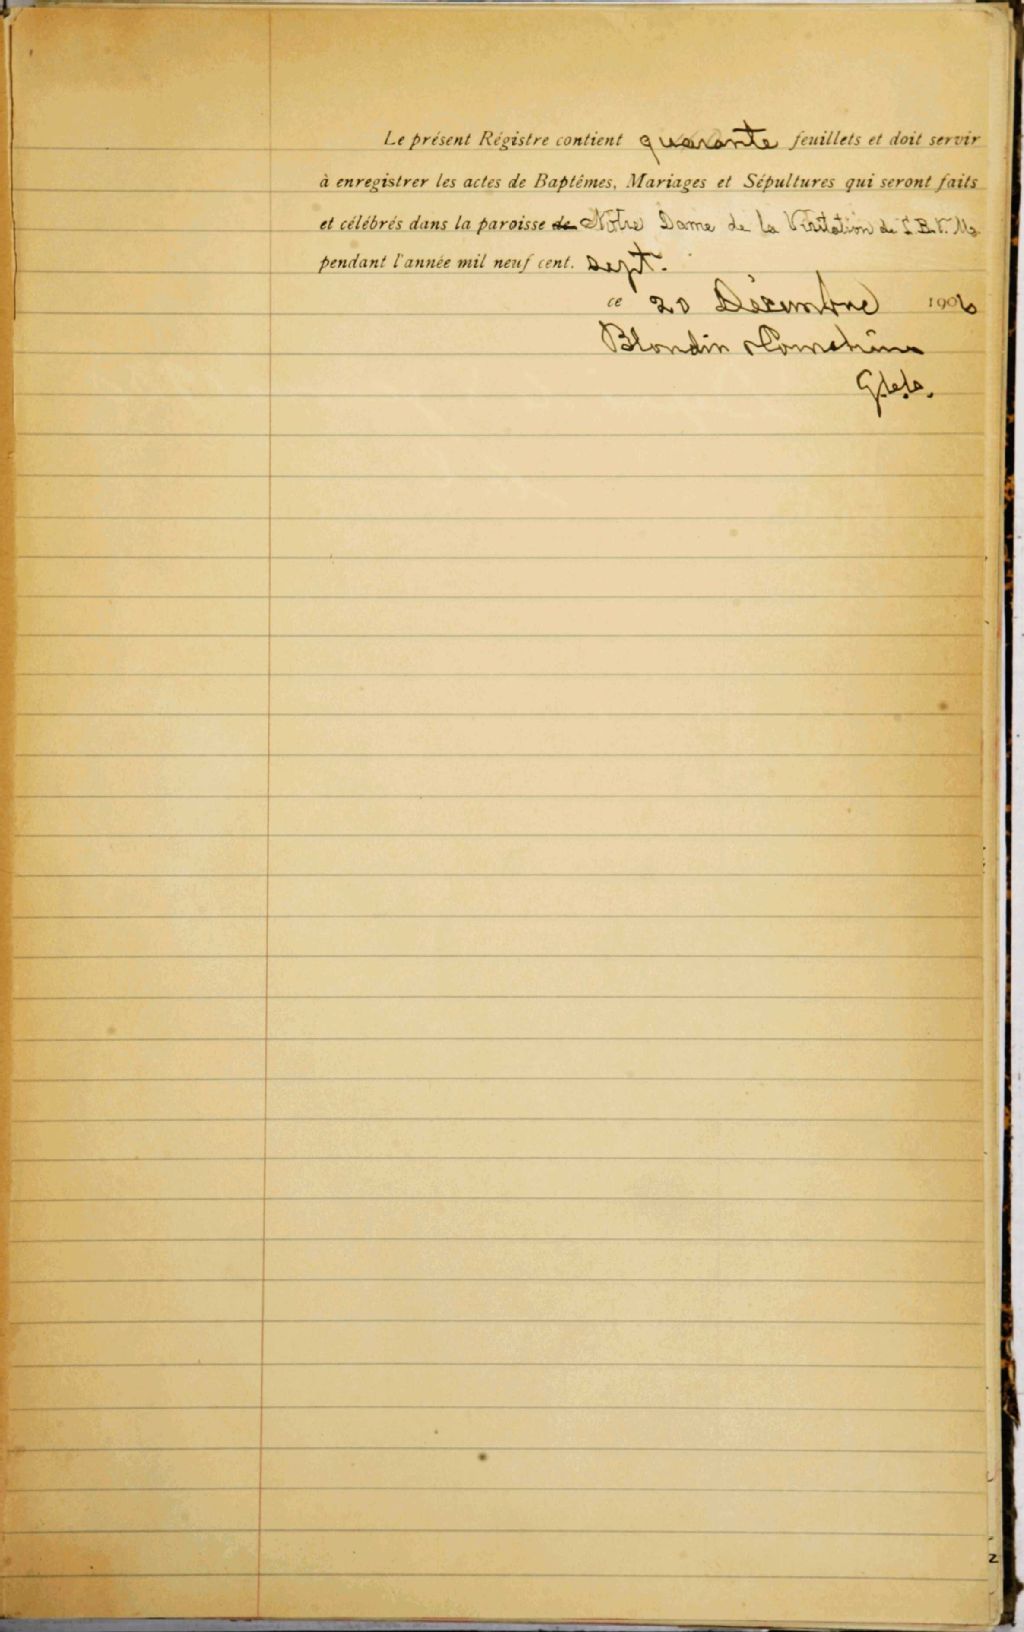 Le présent Régistre contient quarante feuillets et doit servir
à enregistrer les actes de Baptêmes, Mariages et Sépultures qui seront faits
et célébrés dans la paroisse de Notre Dame de la Visitation de L B. V. M.
pendant l'année mil neuf cent. sept.
ce 20 Décembre 1906
Blondin